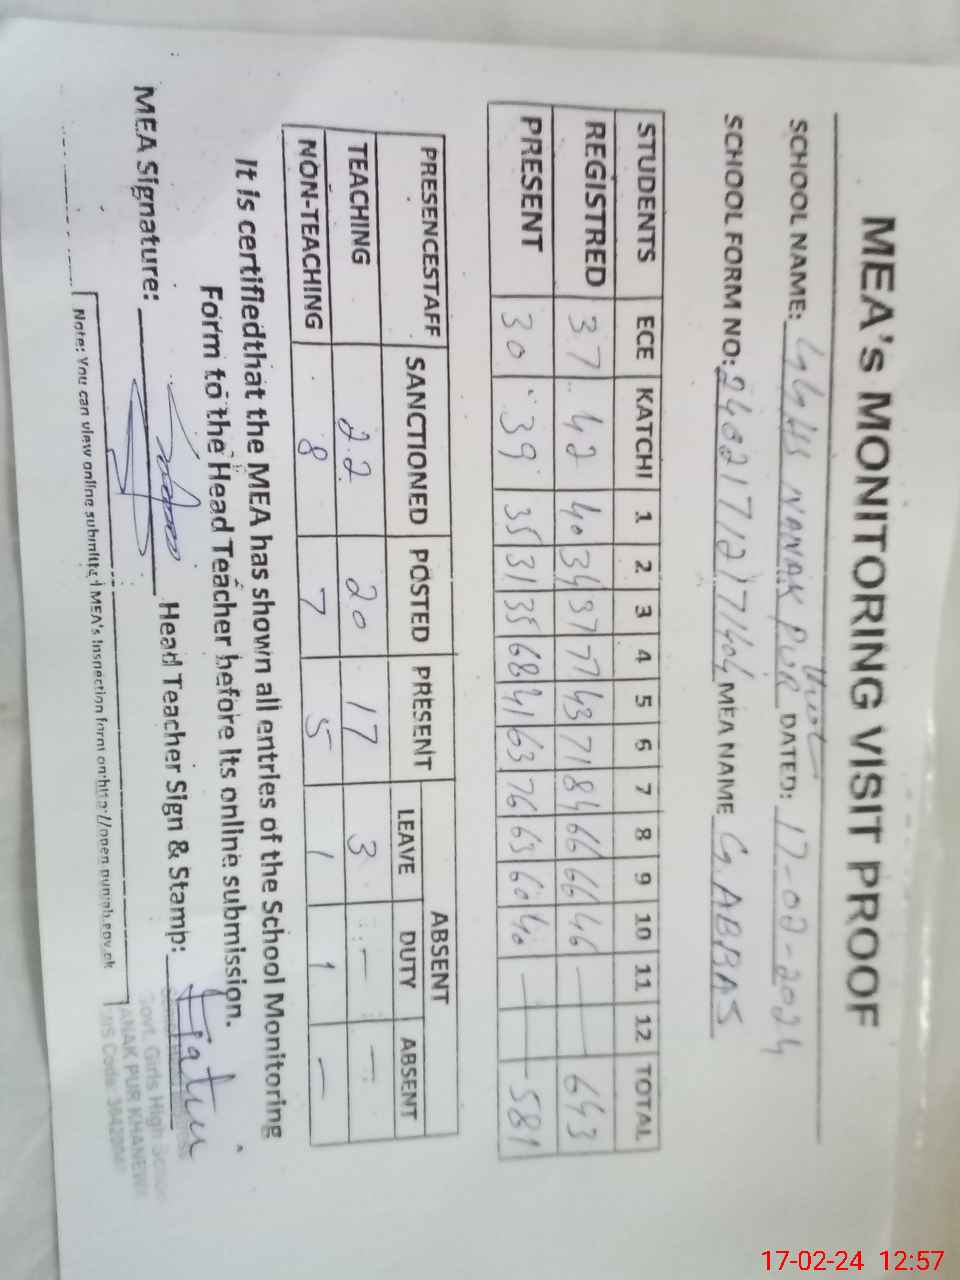 MEA's MONITORING VISIT PROOF
SCHOOL NAME: GGHS NANAK PUR DATED: 17-02-2024
SCHOOL FORM NO: MEA NAME G. ABBAS
STUDENTS ECE KATCHI 1 2 3 4 5 6 7 8 9 10 11 12 TOTAL
REGISTRED 37 42 40 34 37 77 43 71 84 66 66 46 — — 643
PRESENT 30 39 35 31 35 68 41 63 76 63 60 40 — — 581
PRESENCESTAFF SANCTIONED POSTED PRESENT ABSENT
LEAVE DUTY ABSENT
TEACHING 22 20 17 3 — —
NON-TEACHING 8 7 5 1 1 —
It is certifiedthat the MEA has shown all entries of the School Monitoring
Form to the Head Teacher before Its online submission.
MEA Signature: Head Teacher Sign & Stamp:
Govt. Girls High School
NANAK PUR KHANEWAL
Note: You can view online submitted MEA's Inspection form on:http://open.punjab.gov.pk
17-02-24 12:57